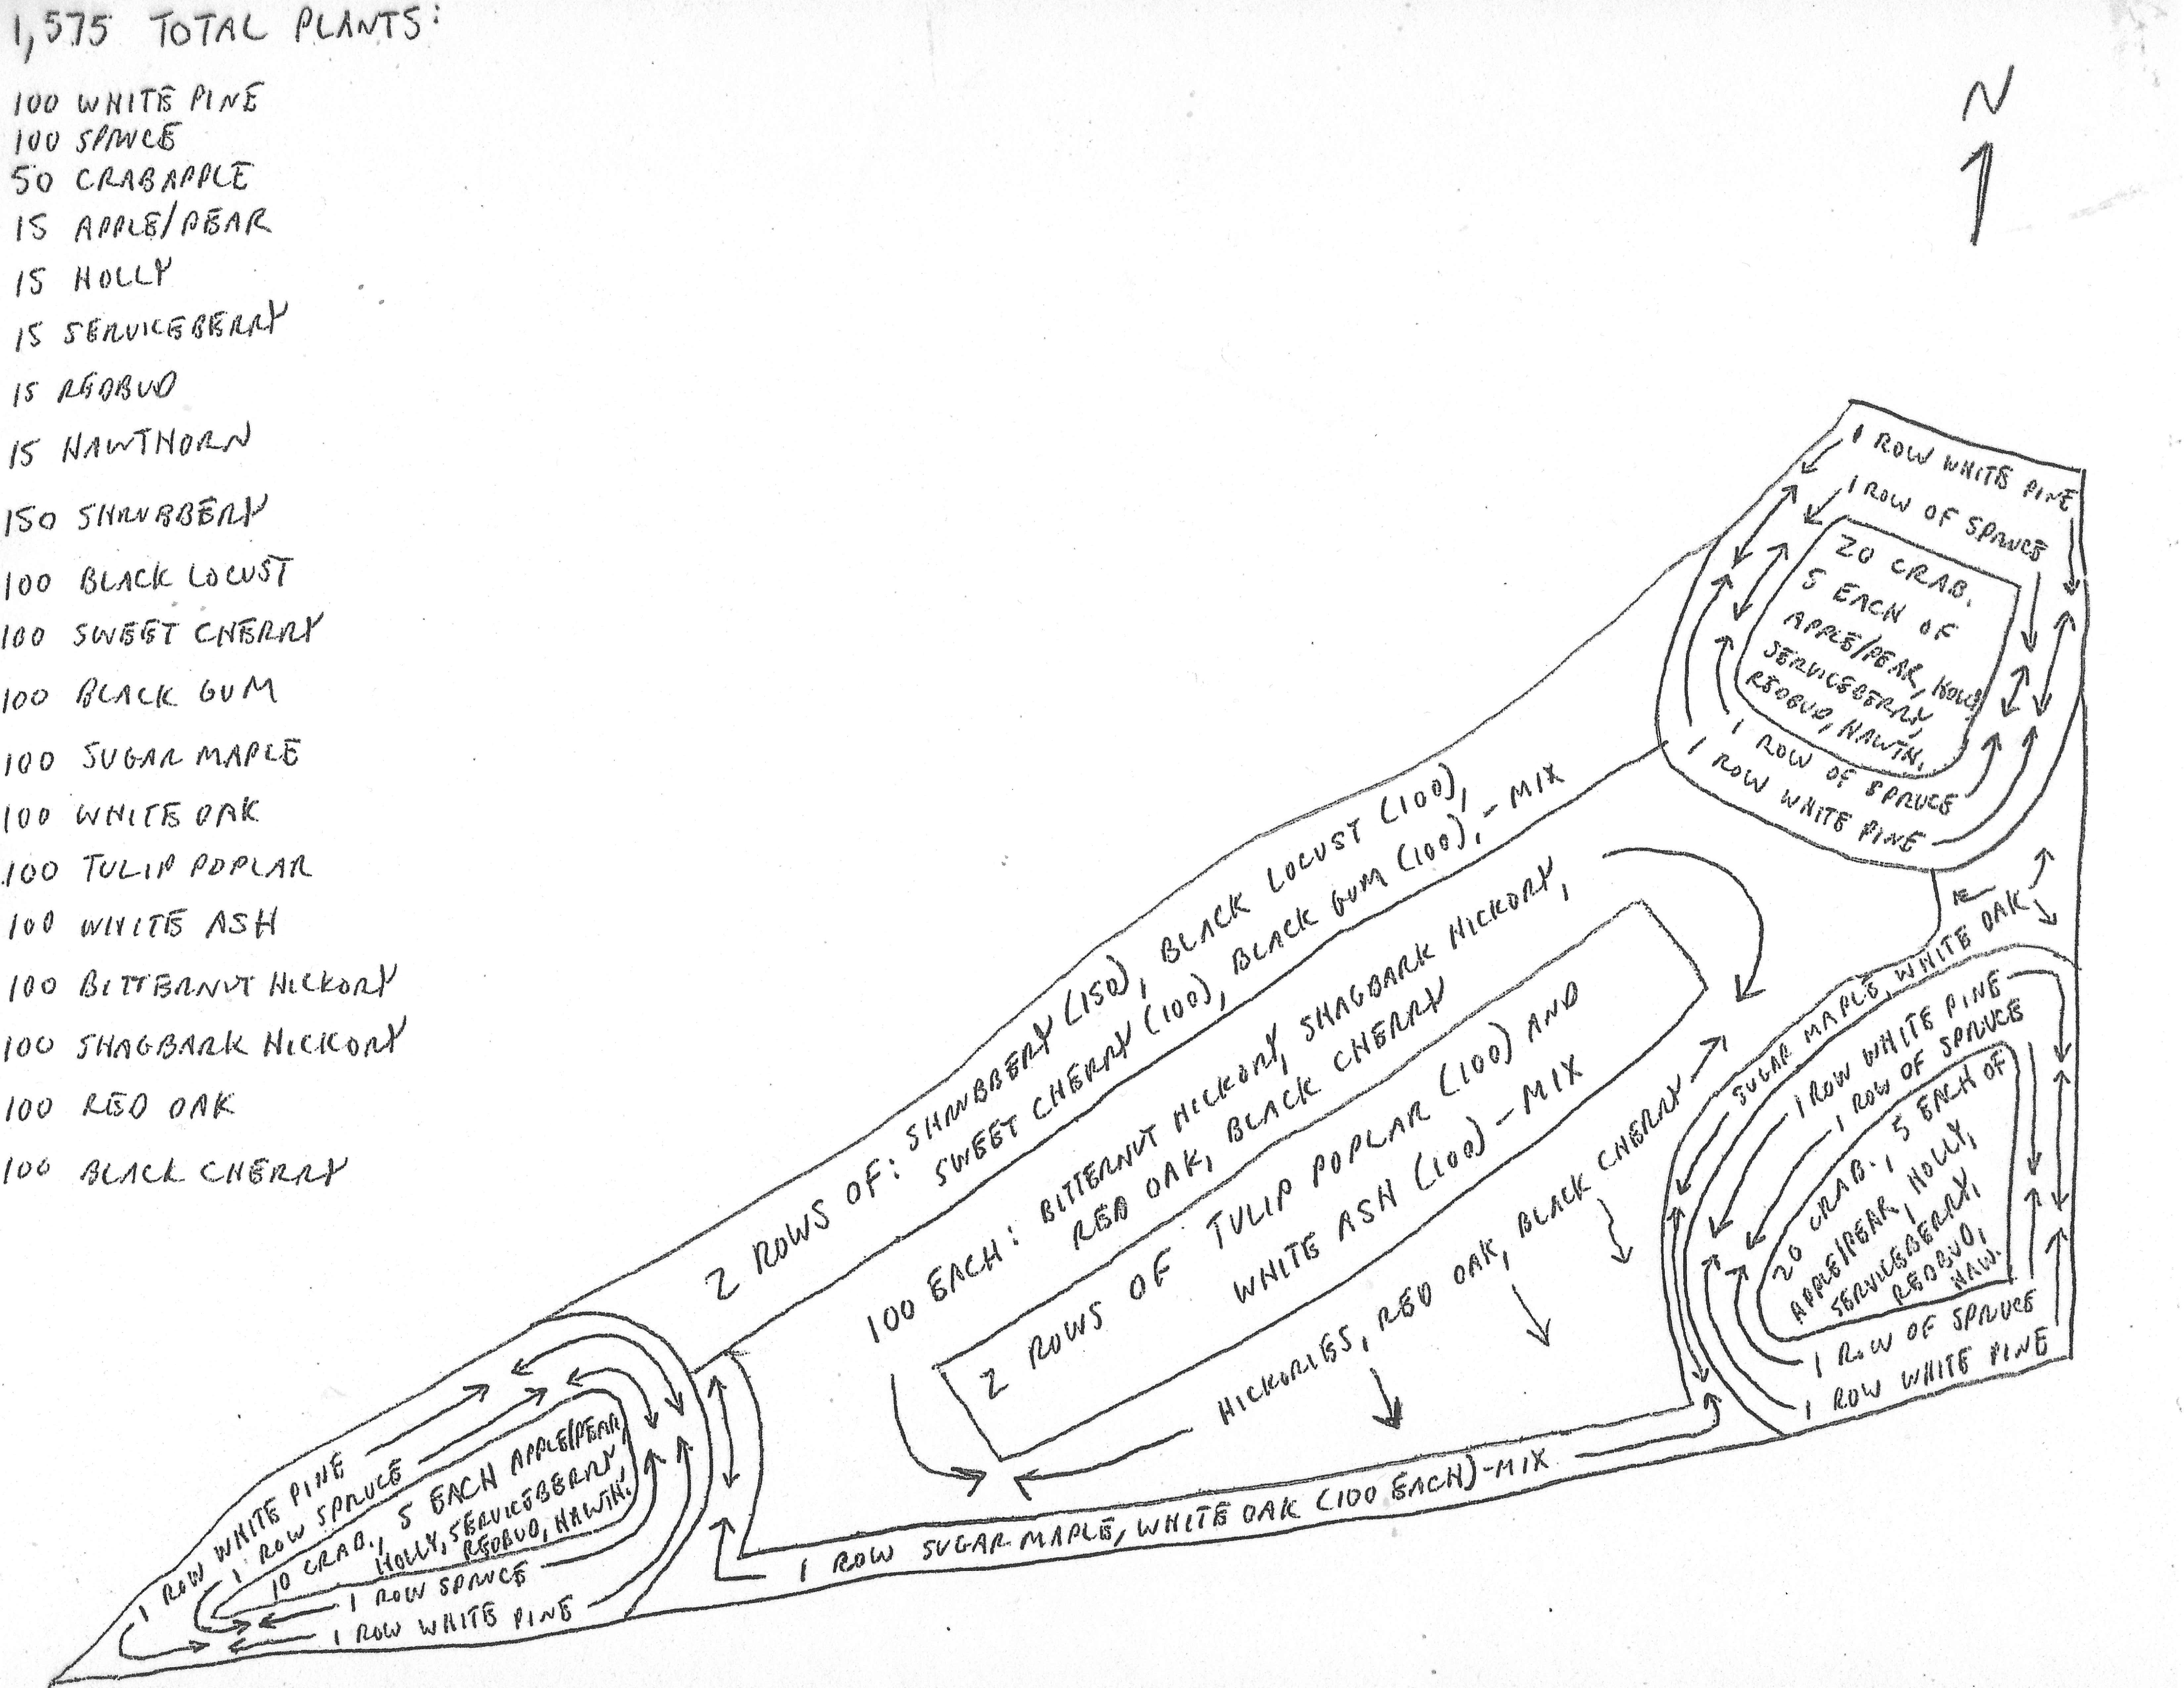 1,575 TOTAL PLANTS:
100 WHITE PINE
100 SPRUCE
50 CRABAPPLE
15 APPLE/PEAR
15 HOLLY
15 SERVICEBERRY
15 REDBUD
15 HAWTHORN
150 SHRUBBERY
100 BLACK LOCUST
100 SWEET CHERRY
100 BLACK GUM
100 SUGAR MAPLE
100 WHITE OAK
100 TULIP POPLAR
100 WHITE ASH
100 BITTERNUT HICKORY
100 SHAGBARK HICKORY
100 RED OAK
100 BLACK CHERRY
N
1 ROW WHITE PINE
1 ROW OF SPRUCE
20 CRAB.
5 EACH OF
APPLE/PEAR, HOLLY
SERVICEBERRY,
REDBUD, HAWTH.
1 ROW OF SPRUCE
1 ROW WHITE PINE
2 ROWS OF: SHRUBBERY (150), BLACK LOCUST (100),
SWEET CHERRY (100), BLACK GUM (100), - MIX
100 EACH: BITTERNUT HICKORY, SHAGBARK HICKORY,
RED OAK, BLACK CHERRY
2 ROWS OF TULIP POPLAR (100) AND
WHITE ASH (100) - MIX
HICKORIES, RED OAK, BLACK CHERRY
SUGAR MAPLE, WHITE OAK
1 ROW WHITE PINE
1 ROW OF SPRUCE
20 CRAB., 5 EACH OF
APPLE/PEAR, HOLLY,
SERVICEBERRY,
REDBUD,
HAW.
1 ROW OF SPRUCE
1 ROW WHITE PINE
1 ROW SUGAR MAPLE, WHITE OAK (100 EACH) - MIX
1 ROW WHITE PINE
1 ROW SPRUCE
10 CRAB., 5 EACH APPLE/PEAR,
HOLLY, SERVICEBERRY
REDBUD, HAWTH.
1 ROW SPRUCE
1 ROW WHITE PINE